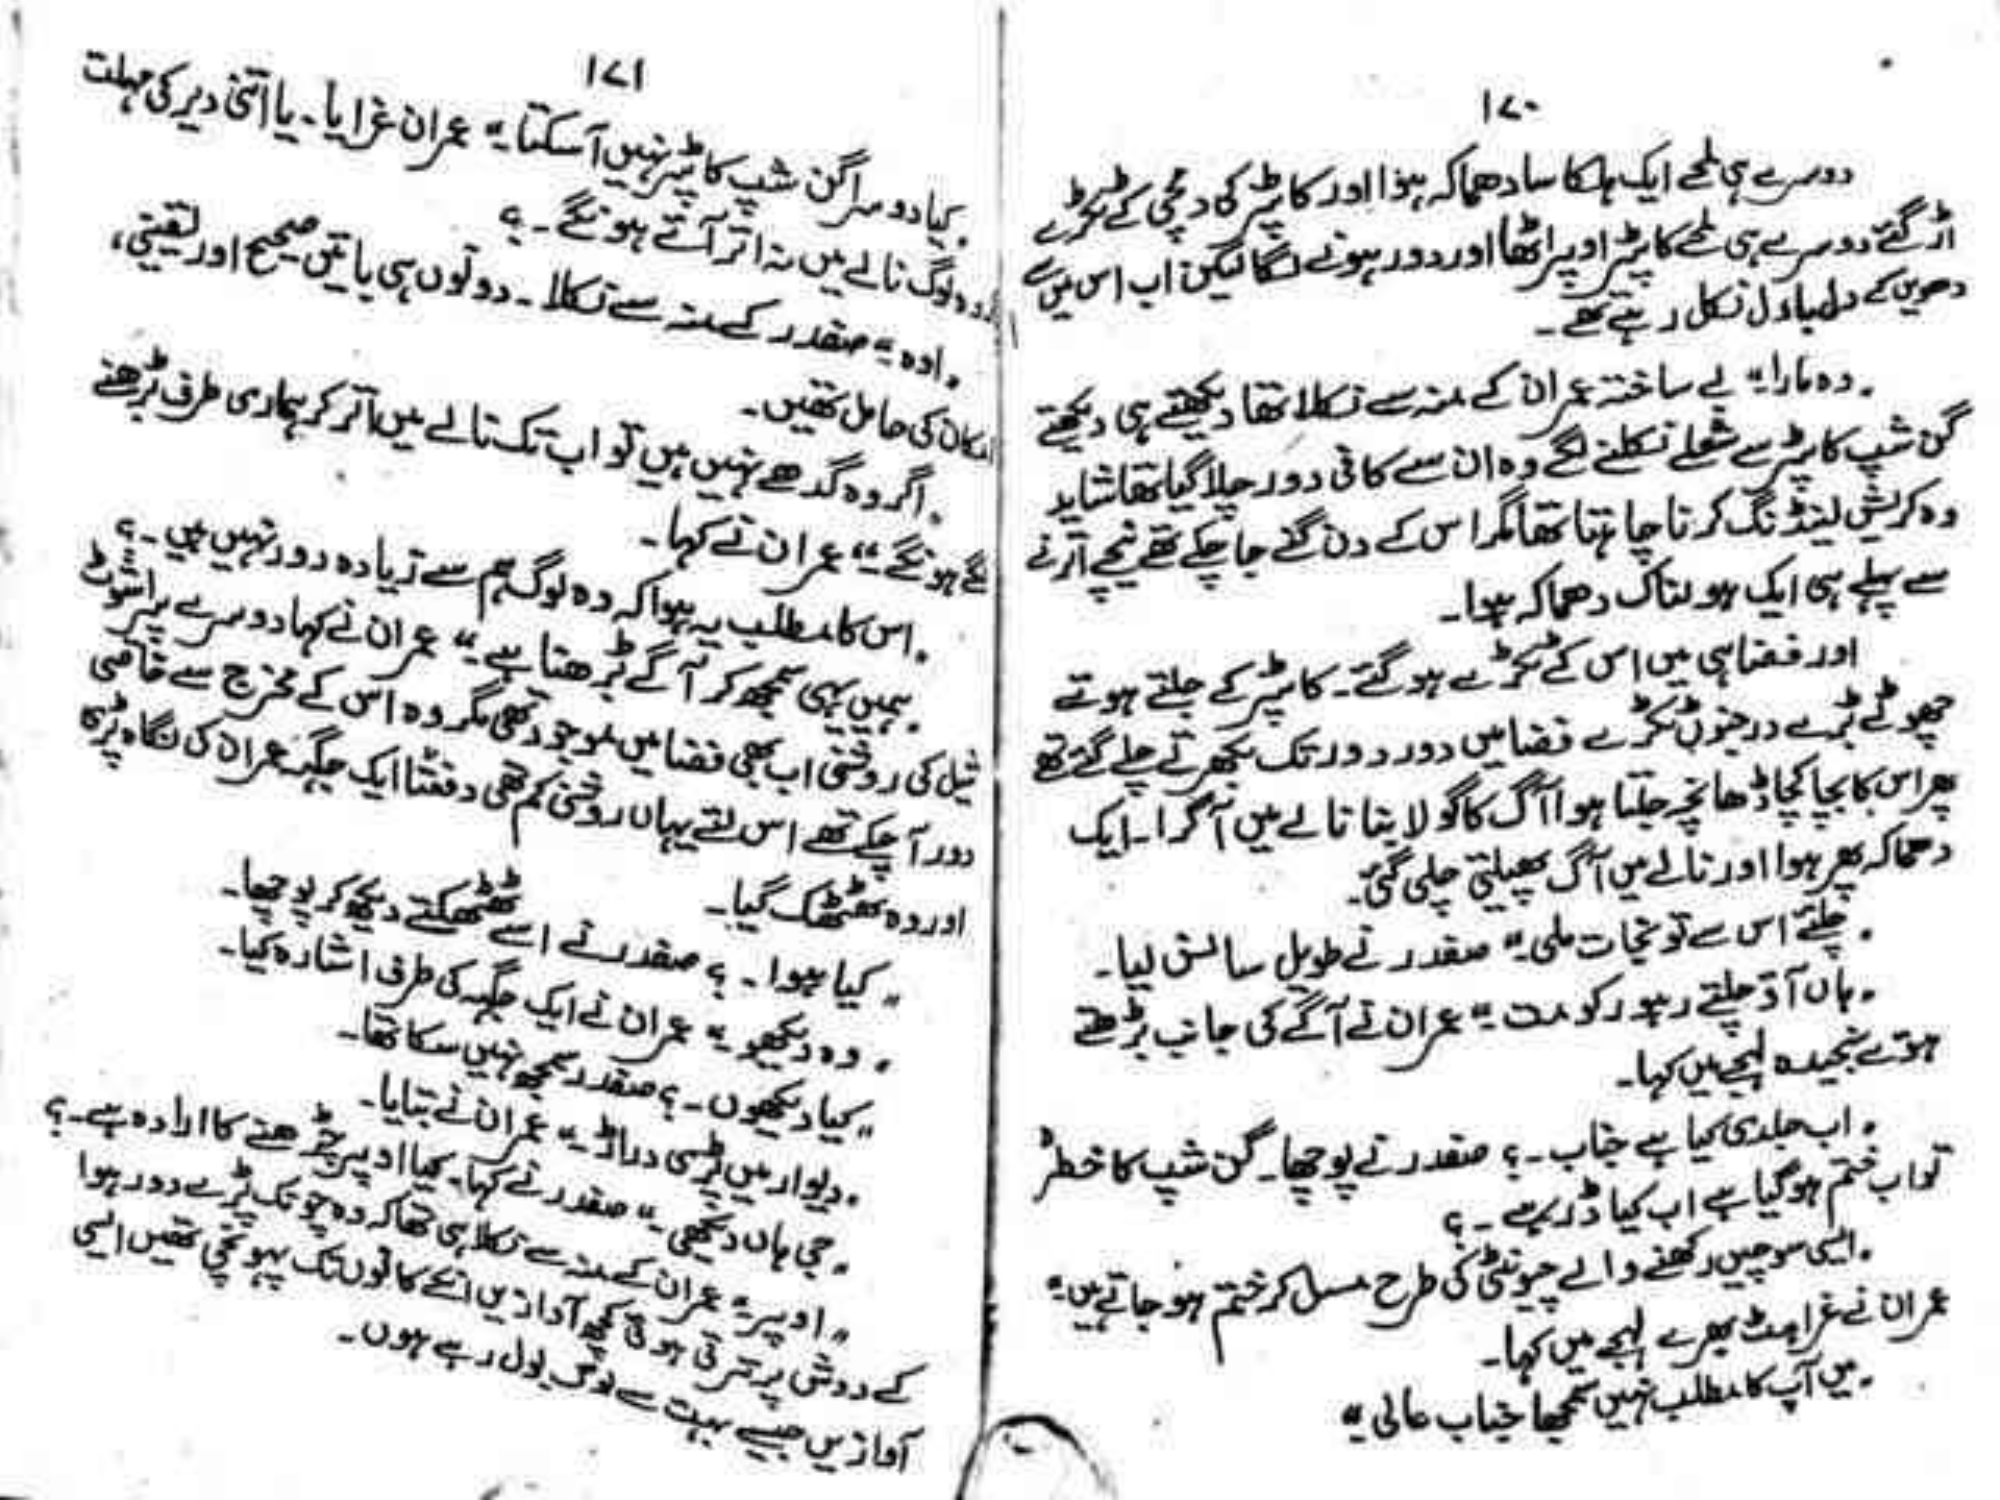 ۱۷۰
دوسرے ہی لمحے ایک ہلکا سا دھماکہ ہوا اور کاپٹر کی دمچی کے ٹکڑے
اڑ گئے دوسرے ہی لمحے کاپٹر اوپر اٹھا اور دور ہونے لگا لیکن اب اس میں سے
دھویں کے بادل نکل رہے تھے۔
"وہ مارا" بے ساختہ عمران کے منہ سے نکلا تھا دیکھتے ہی دیکھتے
گن شپ کاپٹر سے شعلے نکلنے لگے وہ ان سے کافی دور چلا گیا تھا شاید
وہ کریش لینڈنگ کرنا چاہتا تھا مگر اس کے دن گنے جا چکے تھے نیچے اترنے
سے پہلے ہی ایک ہولناک دھماکہ ہوا۔
اور فضا ہی میں اس کے ٹکڑے ہو گئے۔ کاپٹر کے جلتے ہوئے
چھوٹے بڑے درجنوں ٹکڑے فضا میں دور دور تک بکھرتے چلے گئے تھے
پھر اس کا بچا کچا ڈھانچہ جلتا ہوا آگ کا گولا بنا نالے میں آ گرا۔ ایک
دھماکہ پھر ہوا اور نالے میں آگ پھیلتی چلی گئی۔
"چلئے اس سے تو نجات ملی" صفدر نے طویل سانس لیا۔
"ہاں آؤ چلتے رہو رکو مت" عمران نے آگے کی جانب بڑھتے
ہوئے سنجیدہ لہجے میں کہا۔
"اب جلدی کیا ہے جناب۔؟ صفدر نے پوچھا۔ گن شپ کا خطرہ
تو اب ختم ہو گیا ہے اب کیا ڈر ہے۔؟
"ایسی سوچیں رکھنے والے چیونٹی کی طرح مسل کر ختم ہو جاتے ہیں"
عمران نے غراہٹ بھرے لہجے میں کہا۔
"میں آپ کا مطلب نہیں سمجھا جناب عالی"
۱۷۱
"کیا دوسرا گن شپ کاپٹر نہیں آ سکتا" عمران غرایا۔ یا اتنی دیر کی مہلت
وہ لوگ نالے میں نہ اتر آئے ہونگے۔؟
"اوہ" صفدر کے منہ سے نکلا۔ دونوں ہی باتیں صحیح اور یقینی،
امکان کی حامل تھیں۔
"اگر وہ گدھے نہیں ہیں تو اب تک نالے میں اتر کر ہماری طرف بڑھنے
لگے ہونگے" عمران نے کہا۔
"اس کا مطلب یہ ہوا کہ وہ لوگ ہم سے زیادہ دور نہیں ہیں۔؟
"ہمیں یہی سمجھ کر آگے بڑھنا ہے" عمران نے کہا دوسرے پیراشوٹ
شیل کی روشنی اب بھی فضا میں موجود تھی مگر وہ اس کے مخرج سے خاصی
دور آ چکے تھے اس لئے یہاں روشنی کم تھی دفعتاً ایک جگہ عمران کی نگاہ پڑی
اور وہ ٹھٹھک گیا۔
"کیا ہوا۔؟ صفدر نے اسے ٹھٹھکتے دیکھ کر پوچھا۔
"وہ دیکھو" عمران نے ایک جگہ کی طرف اشارہ کیا۔
"کیا دیکھوں۔؟ صفدر سمجھ نہیں سکا تھا۔
"دیوار میں بڑی سی دراڑ" عمران نے بتایا۔
"جی ہاں دیکھی۔" صفدر نے کہا۔ کیا اوپر چڑھنے کا ارادہ ہے۔؟
"اوپر" عمران کے منہ سے نکلا ہی تھا کہ وہ چونک پڑے دور ہوا
کے دوش پر تیرتی ہوئی کچھ آوازیں انکے کانوں تک پہونچی تھیں ایسی
آوازیں جیسے بہت سے لوگ بول رہے ہوں۔